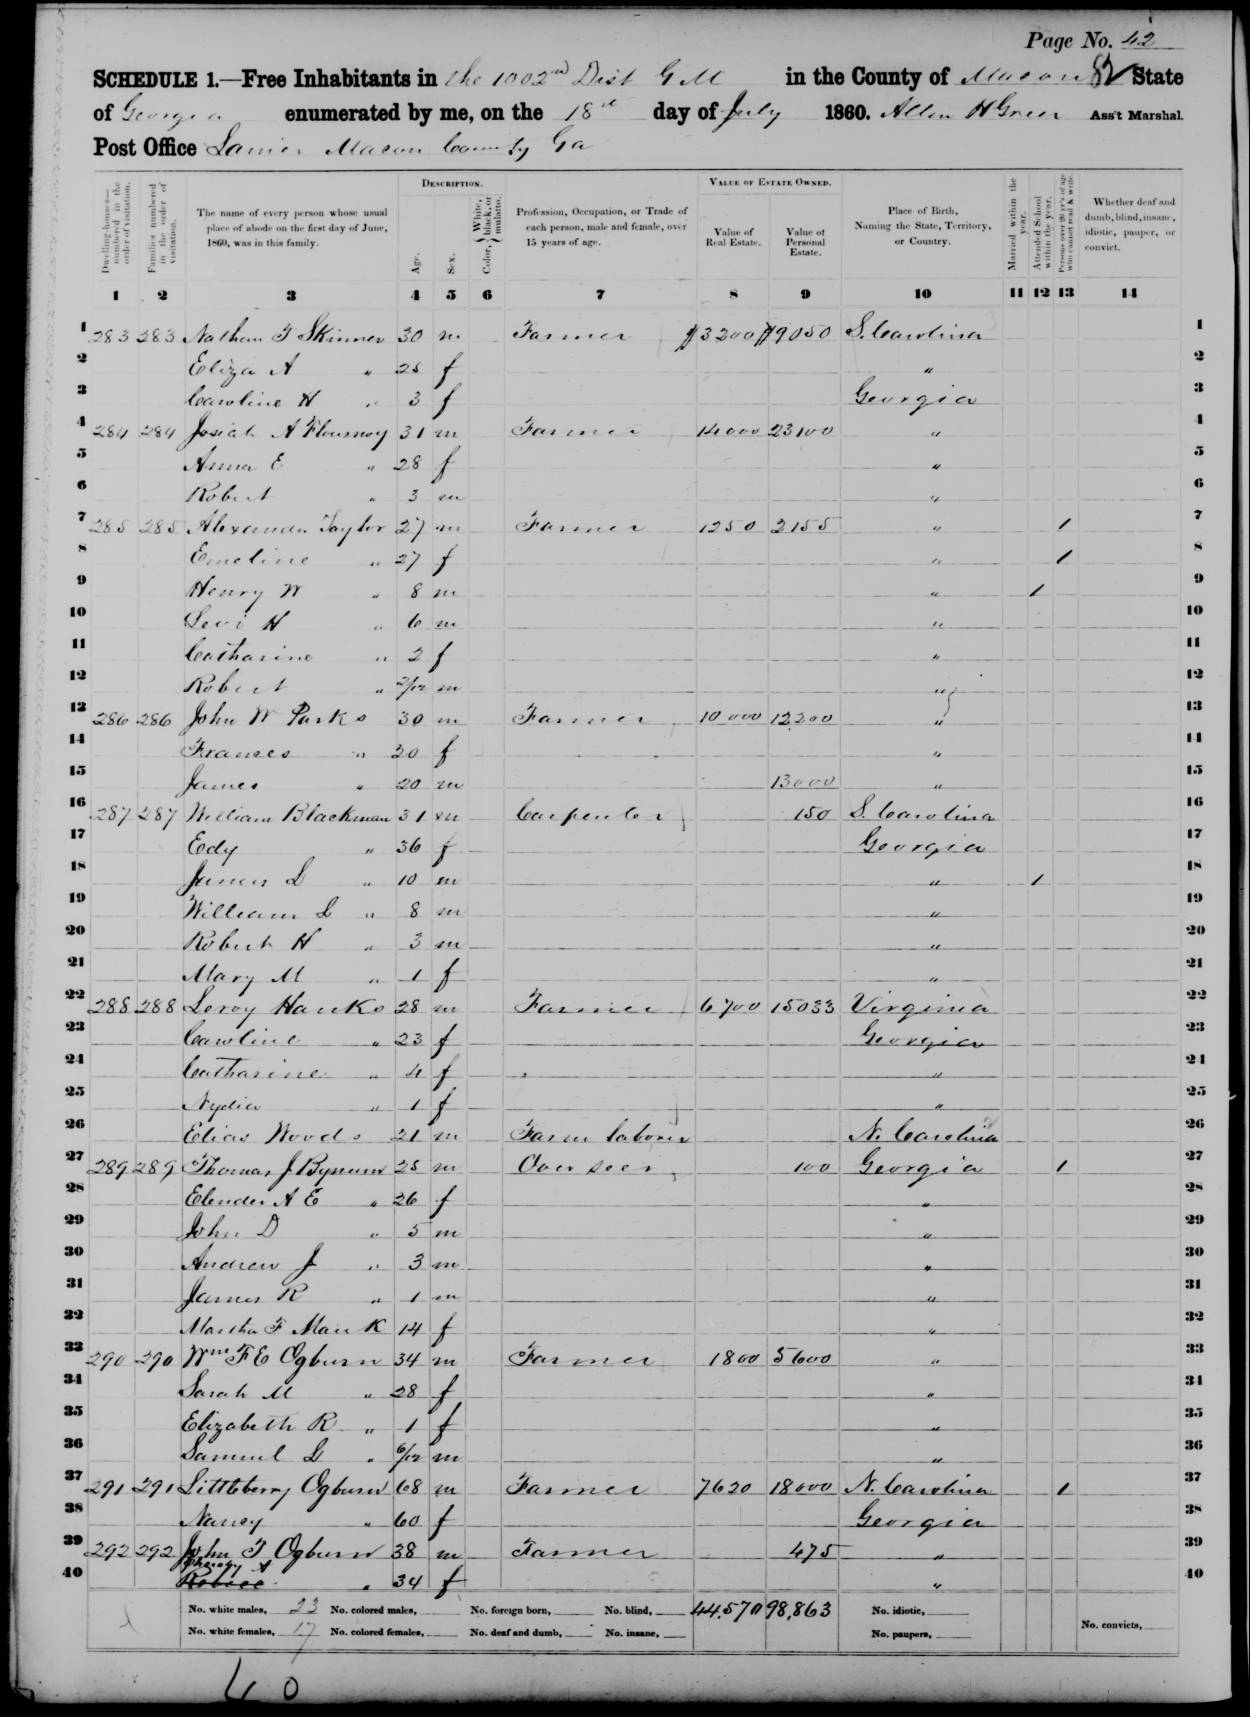 Page No. 42
SCHEDULE 1.—Free Inhabitants in the 1002nd Dist G M in the County of Macon State
of Georgia enumerated by me, on the 18th day of July 1860. Allen H Greer Ass't Marshal.
Post Office Lanier Macon County Ga
DESCRIPTION. VALUE OF ESTATE OWNED.
Dwelling-houses— numbered in the order of visitation. Families numbered in the order of visitation. The name of every person whose usual place of abode on the first day of June, 1860, was in this family. Age. Sex. Color, White, black, or mulatto. Profession, Occupation, or Trade of each person, male and female, over 15 years of age. Value of Real Estate. Value of Personal Estate. Place of Birth, Naming the State, Territory, or Country. Married within the year. Attended School within the year. Persons over 20 y'rs of age who cannot read & write. Whether deaf and dumb, blind, insane, idiotic, pauper, or convict.
1 2 3 4 5 6 7 8 9 10 11 12 13 14
1 283 283 Nathan T Skinner 30 m Farmer $3200 $9050 S. Carolina 1
2 Eliza A " 25 f " 2
3 Caroline H " 3 f Georgia 3
4 284 284 Josiah A Flournoy 31 m Farmer 14000 23100 " 4
5 Anna E " 28 f " 5
6 Robert " 3 m " 6
7 285 285 Alexander Taylor 27 m Farmer 1250 2155 " 1 7
8 Emeline " 27 f " 1 8
9 Henry W " 8 m " 1 9
10 Levi H " 6 m " 10
11 Catharine " 2 f " 11
12 Robert " 2/12 m " 12
13 286 286 John W Parks 30 m Farmer 10000 12200 " 13
14 Frances " 20 f " 14
15 James " 20 m 13000 " 15
16 287 287 William Blackman 31 m Carpenter 150 S. Carolina 16
17 Edy " 36 f Georgia 17
18 James L " 10 m " 1 18
19 William L " 8 m " 19
20 Robert H " 3 m " 20
21 Mary M " 1 f " 21
22 288 288 Leroy Hanks 28 m Farmer 6700 15033 Virginia 22
23 Caroline " 23 f Georgia 23
24 Catharine " 4 f " 24
25 Nydia " 1 f " 25
26 Elias Woods 21 m Farm laborer N. Carolina 26
27 289 289 Thomas J Bynum 25 m Overseer 100 Georgia 1 27
28 Elender A E " 26 f " 28
29 John D " 5 m " 29
30 Andrew J " 3 m " 30
31 James R " 1 m " 31
32 Martha F 14 f " 32
33 290 290 Wm F E Ogburn 34 m Farmer 1800 5600 " 33
34 Sarah M " 28 f " 34
35 Elizabeth R " 1 f " 35
36 Samuel L " 6/12 m " 36
37 291 291 Littleberry Ogburn 68 m Farmer 7620 18000 N. Carolina 1 37
38 Nancy " 60 f Georgia 38
39 292 292 John T Ogburn 38 m Farmer 475 " 39
40 A " 34 f " 40
No. white males, 23 No. colored males, No. foreign born, No. blind, 44,570 98,863 No. idiotic,
No. white females, 17 No. colored females, No. deaf and dumb, No. insane, No. paupers, No. convicts,
40